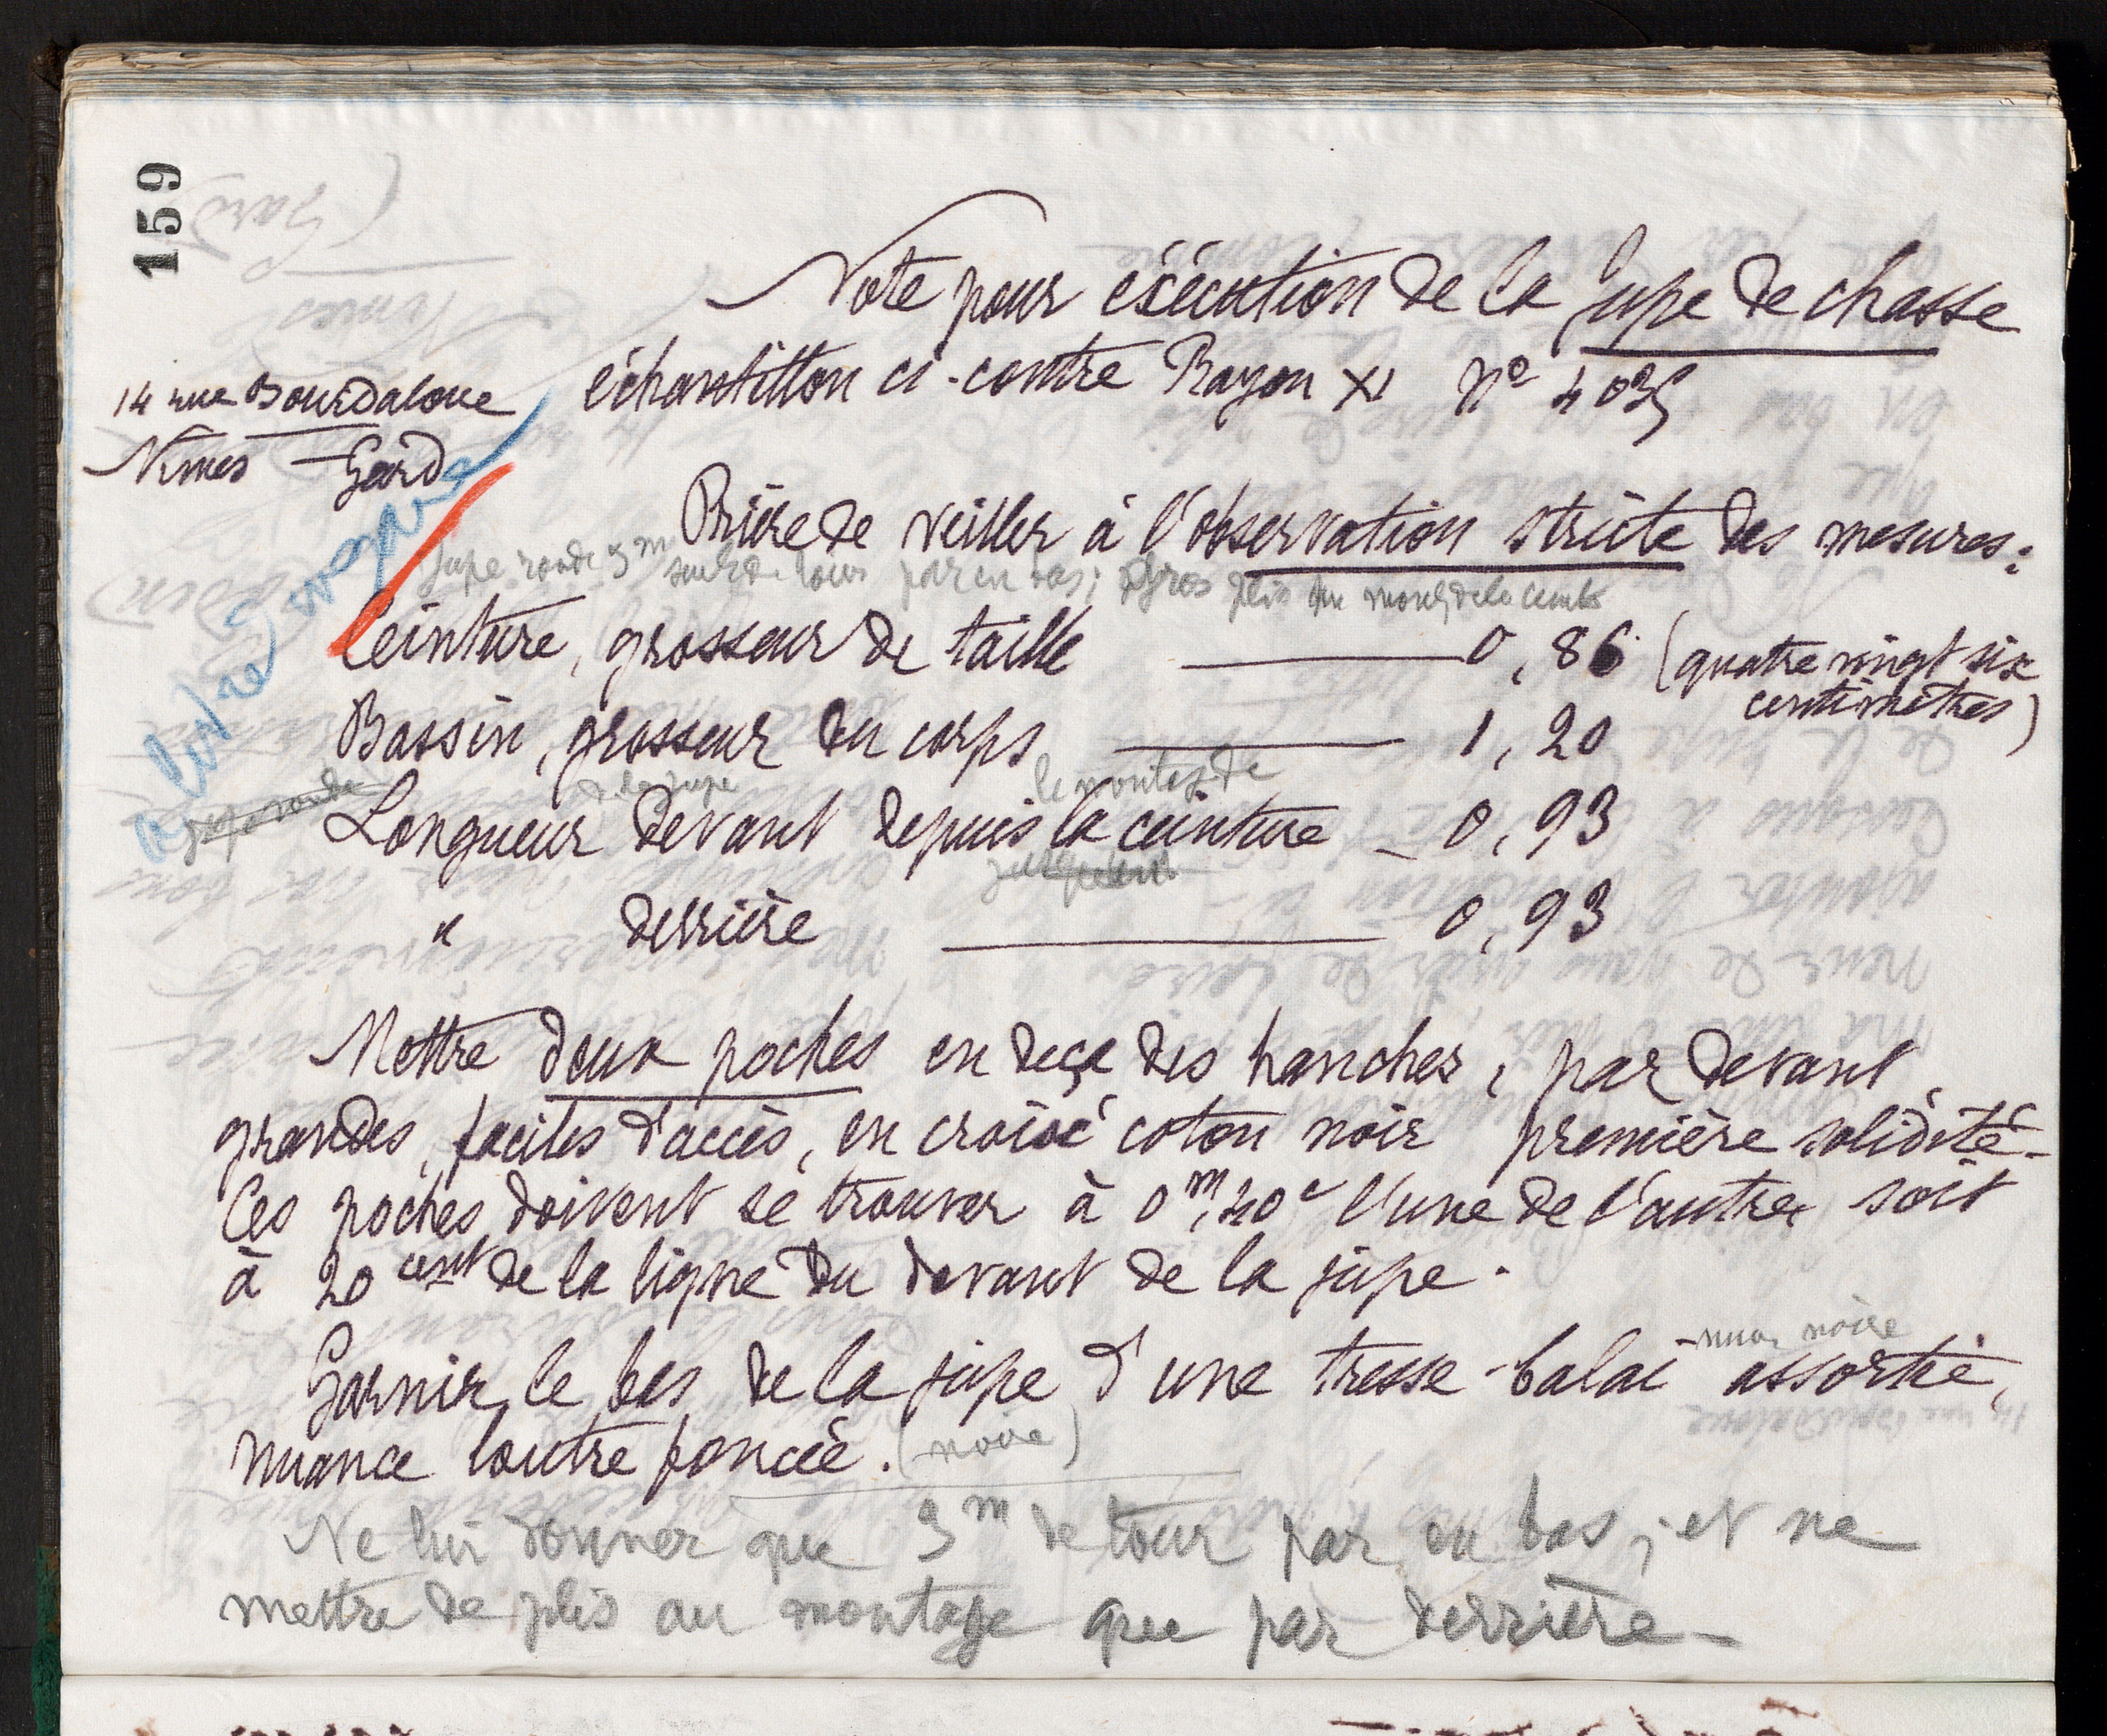 159
Note pour éxécution de la Jupe de chasse
échantillon ci-contre Rayon XI No 4035
14 rue Bourdaloue
Nîmes Gard
Prière de veiller à l'observation stricte des mesures:
Jupe ronde 3m de tour par en bas;
Ceinture, grosseur de taille 0,86 (quatre vingt six
centimètres)
Bassin, grosseur du corps 1,20
de la jupe le montage de
jupe ronde
Longueur devant depuis la ceinture - 0,93
" derrière 0,93
Mettre deux poches en deça des hanches, par devant,
grandes, faciles d'accès, en croisé coton noir première solidité-
Ces poches doivent se trouver à 0m,40c l'une de l'autre soit
à 20 cent de la ligne du devant de la jupe.
noire
Garnir le bas de la jupe d'une tresse-balai assortie,
nuance loutre foncée. (noire)
Ne lui donner que 3m de tour par en bas, et ne
mettre de plis au montage que par derrière-